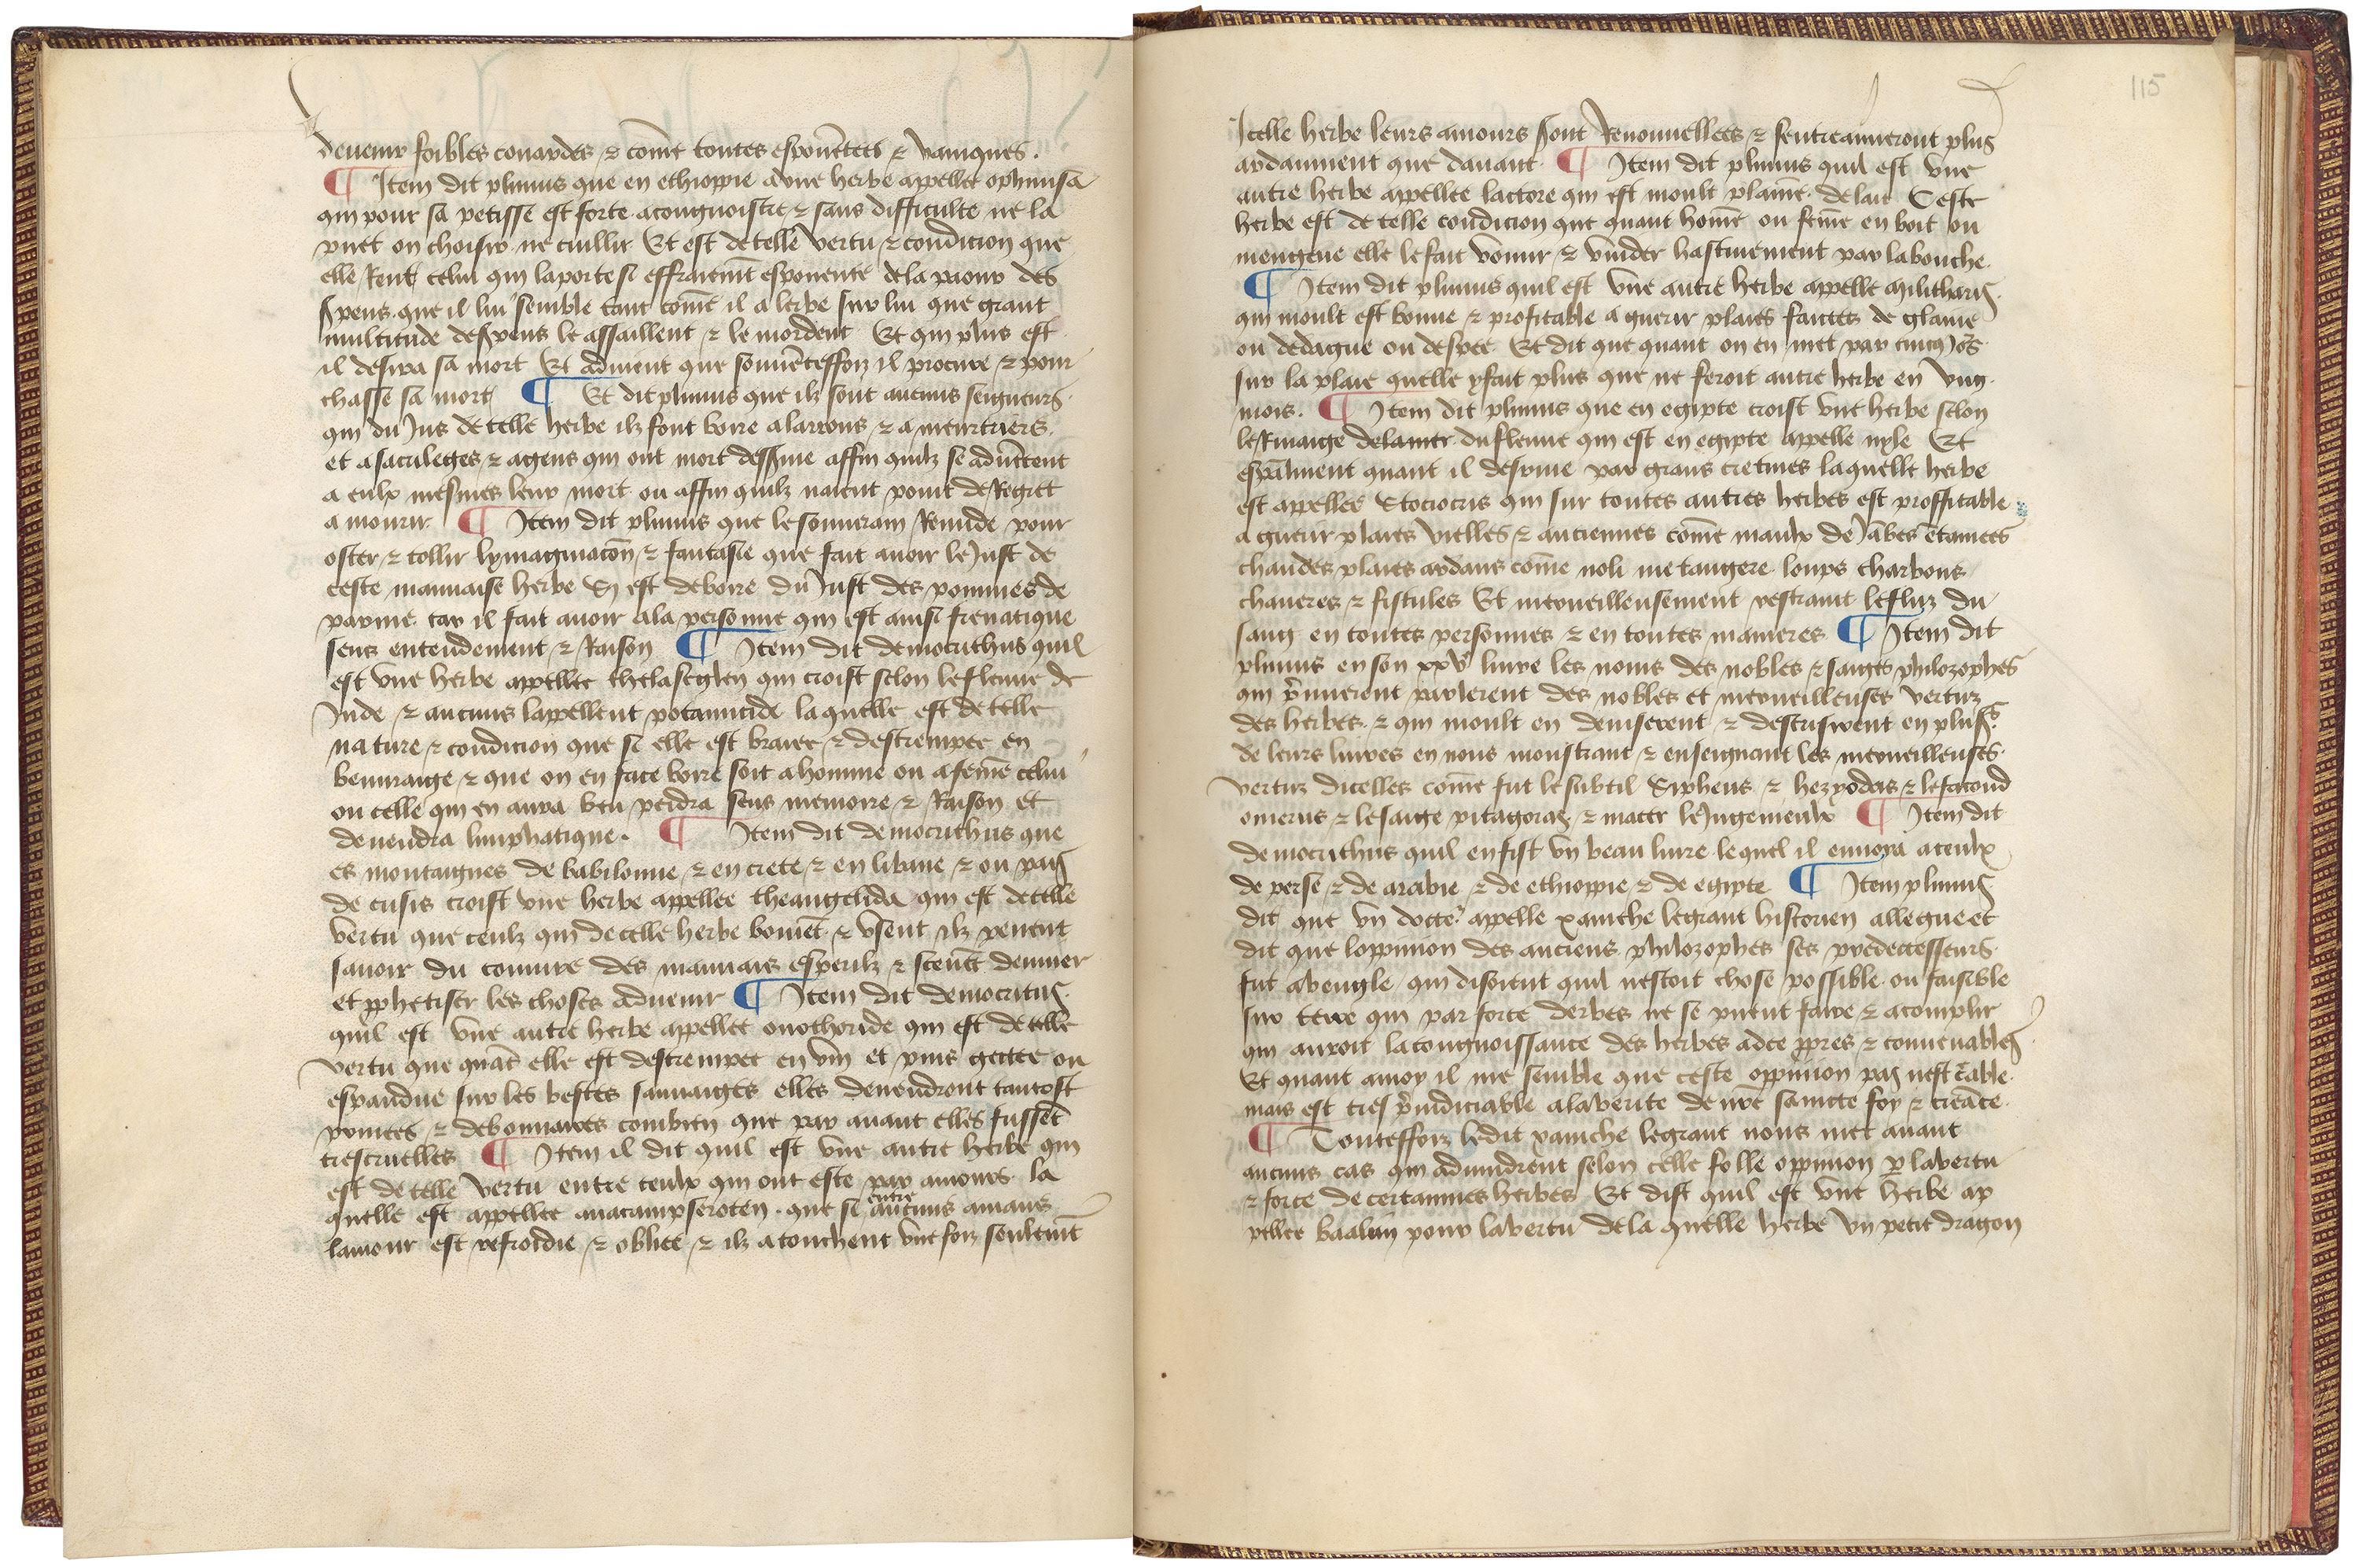 devenir foibles couardes ⁊ cōme toutes espouētees ⁊ vaniques.
¶ Item dit plinius que en ethioppie a vne herbe appellee ophiusā
qui pour sa petisse est forte a congnoistre ⁊ sans difficulte ne la
puet on choisir ne cuillir Et est de telle vertu ⁊ condicion que
elle Rent celui qui la porte si effraiemēt espouente de la paour des
spens que il lui semble tant cōme il a lerbe sur lui que grant
multitude de spens le assaillent ⁊ le mordent Et qui plus est
il desira sa mort Et aduient que souuēteffoiz il procure ⁊ pour
chasse sa mort ¶ Et dit plinius que ilz sont aucuns seigneurs
qui du Jus de telle herbe ilz font boire a larrons ⁊ a meurtriers
et a sacrileges ⁊ a gens qui ont mort desseruie affin quilz se aduētent
a eulx mesmes leur mort ou affin quilz naient point de Regret
a mourir. ¶ Item dit plinius que le souuerain Remide pour
oster ⁊ tollir lymaginacōn ⁊ fantasie que fait auoir le Just de
ceste mauuaise herbe Si est de boire du Just des pommes de
parme car il fait auoir a la personne qui est ainsi frenatique
sens entendement ⁊ Raison ¶ Item dit democrithus quil
est vne herbe appellee thelaseglen qui croist selon le fleuue de
Jnde ⁊ aucuns lappellent potamicide la quelle est de telle
nature ⁊ condicion que si elle est braiee ⁊ destrempee en
beuuraige ⁊ que on en face boire soit a homme ou a fēme celui
ou celle qui en aura beu perdra sens memoire ⁊ Raison et
deuendra limphatique. ¶ Item dit democrithus que
es montaignes de babilonne ⁊ en crete ⁊ en libane ⁊ ou pais
de cusis croist vne herbe appellee theangelida qui est de telle
vertu que ceulz qui de celle herbe boiuēt ⁊ vsent ilz peuent
sauoir du conuire des mauuais esperilz ⁊ sceuēt deuiner
et pphetiser les choses aduenir ¶ Item dit democritus
quil est vne autre herbe appellee onothoride qui est de telle
vertu que quāt elle est destrempee en vin et puis gectee ou
espandue sur les bestes sauuaiges elles deuendront tantost
priuees ⁊ debonnaires combien que par auant elles fussēt
trescruelles ¶ Item il dit quil est vne autre herbe qui
est de telle vertu entre ceulx qui ont este par amours la
quelle est appellee anacampseroten. que se entre aucuns amans
lamour est refroidie ⁊ obliee ⁊ ilz atouchent vne foiz seulemēt
Jcelle herbe leurs amours sont Renouuellees ⁊ sentreaimeront plus
ardanment que dauant ¶ Item dit plinius quil est vne
autre herbe appellee lactore qui est moult plaine de lait Ceste
herbe est de telle condicion que quant homē ou fēme en boit ou
mengeue elle le fait vomir ⁊ vuider hastiuement par la bouche
¶ Item dit plinius quil est vne autre herbe appelle militharis
qui moult est bonne ⁊ profitable a guerir plaies faictes de glaiue
ou de dague ou despee Et dit que quant on en met par cincq Jors
sur la plaie quelle y fait plus que ne feroit autre herbe en vng
mois. ¶ Item dit plinius que en egipte croist vne herbe selon
le Riuaige de la mer du fleuue qui est en egipte appelle nyle Et
espālment quant il desriue par grans cretines laquelle herbe
est appellee Stociocris qui sur toutes autres herbes est proffitable
a guerir plaies vielles ⁊ anciennes cōme maulx de Jābes ētamees
chaudes plaies ardans cōme noli me tangere loups charbons
chancres ⁊ fistules Et merueilleusement restraint le fluz du
sang en toutes personnes ⁊ en toutes manieres ¶ Item dit
plinius en son xxve liure les noms des nobles ⁊ saiges philozophes
qui p̄mierent parlerent des nobles et merueilleuses vertuz
des herbes ⁊ qui moult en deuiserent ⁊ descrisirent en plus
de leurs liures en nous monstrant ⁊ enseignant les merueilleuses
vertuz dicelles cōme fut le subtil Sipheus ⁊ hezyodes ⁊ le facond
omerus ⁊ le saige pitagoras ⁊ macer le Jngenieulx ¶ Item dit
democrithus quil en fist vn beau liure lequel il enuoya a ceulx
de perse ⁊ de arabie ⁊ de ethioppie ⁊ de egipte ¶ Item plinius
dit que vn docte appelle xanche le grant historien allegue et
dit que loppinion des anciens philozophes ses predecesseurs
fut abeugle qui disoient quil nestoit chose possible ou faisible
sur terre qui par force derbes ne se puent faire ⁊ acomplir
qui auroit la congnoissance des herbes adce ppres ⁊ conuenables
Et quant amoy il me semble que ceste oppinion pas nest ētable
mais est tres p̄iudiciable a la verite de nrē saincte foy ⁊ creāce
¶ Touteffoiz ledit xanche le grant nous met auant
aucuns cas qui aduindrent selon celle folle oppinion p la vertu
⁊ force de certaines herbes Et dist quil est vne herbe ap
pellee baalun pour la vertu de la quelle herbe vn petit dragon
115